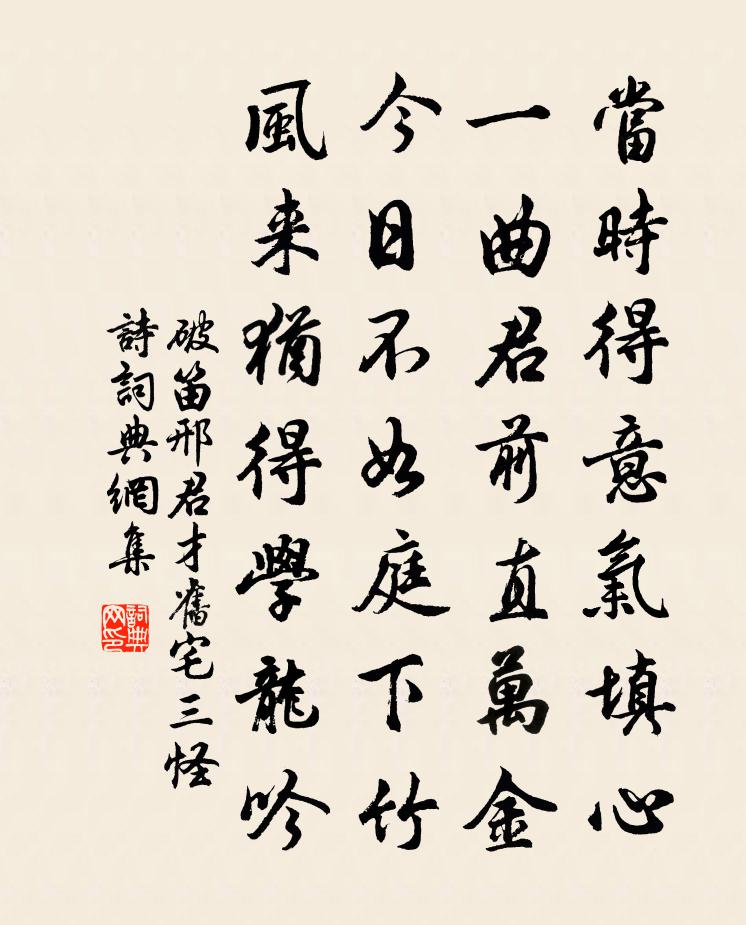 當時得意氣填心
一曲君前直萬金
今日不如庭下竹
風来猶得學龍吟
破笛邢君才舊宅三怪
詩詞典網集
詞典
网印